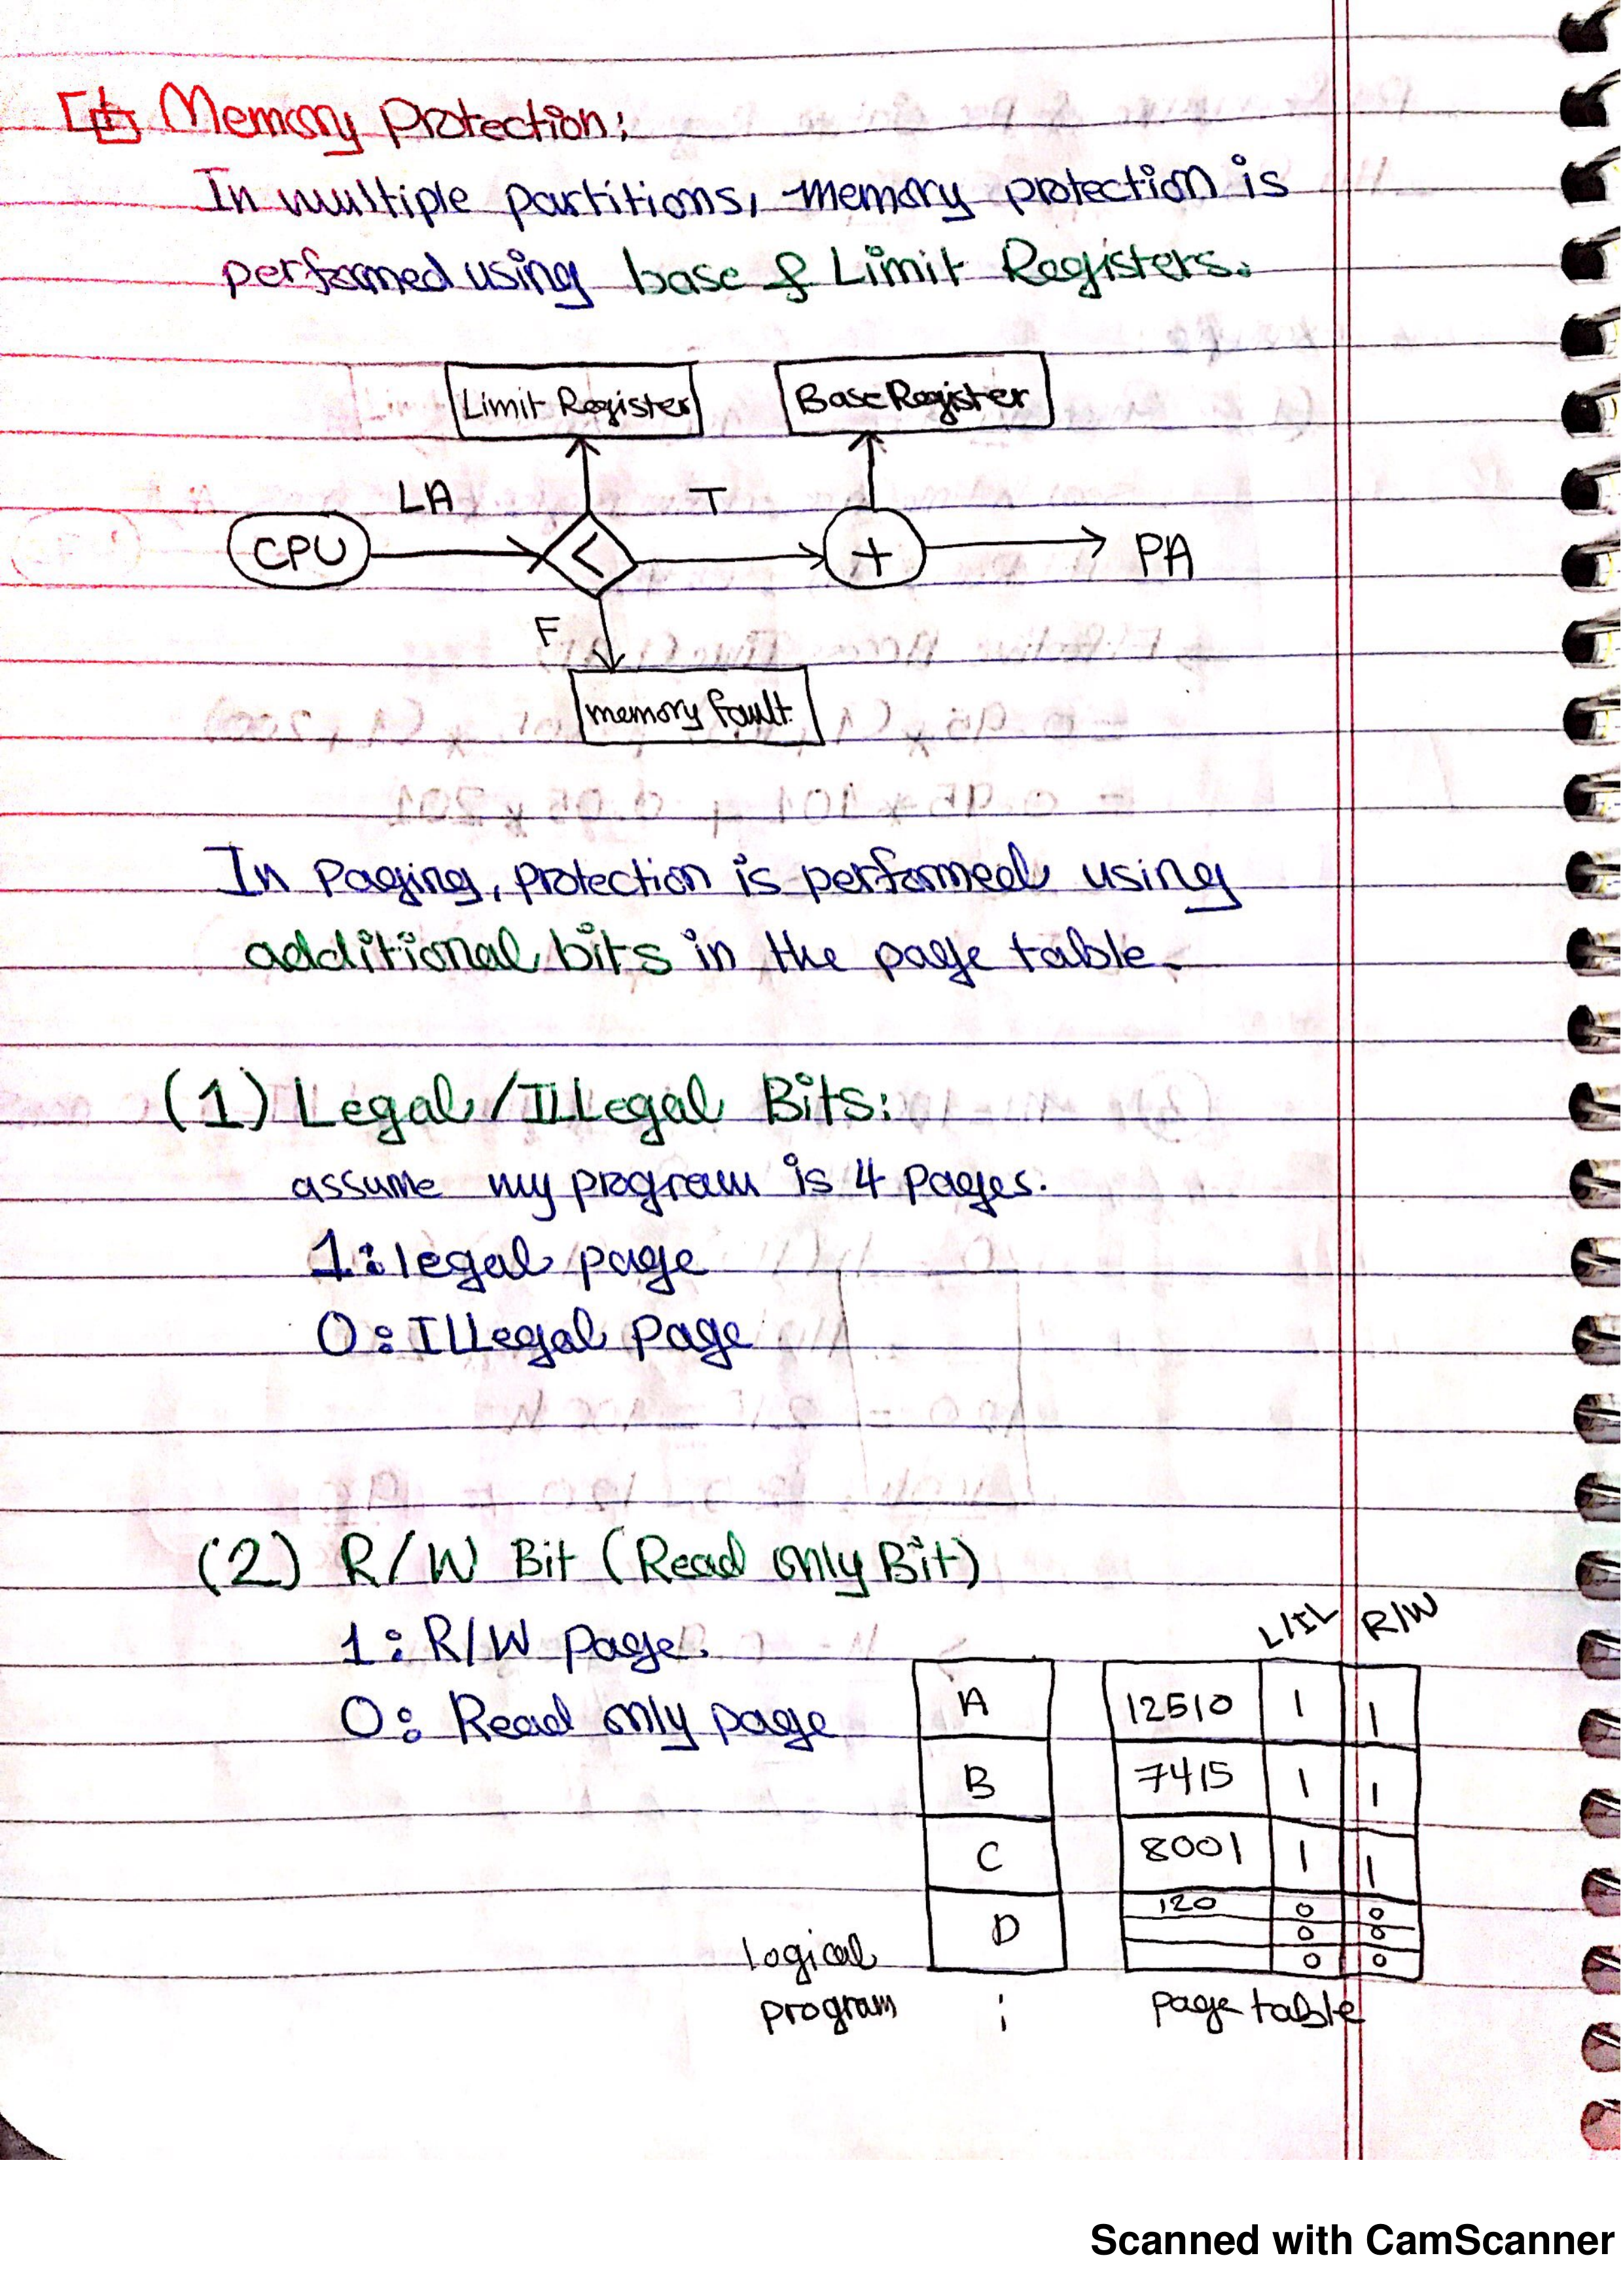 Memory Protection:
In multiple partitions, memory protection is
performed using base & Limit Registers.
Limit Register
Base Register
LA
T
CPU
<
+
PA
F
memory fault.
In Paging, protection is performed using
additional bits in the page table.
(1) Legal/ILLegal Bits:
assume my program is 4 Pages.
1: legal page
0: ILLegal Page
(2) R/W Bit (Read only Bit)
1: R/W Page.
0: Read only page
L/IL R/W
A 12510 1 1
B 7415 1 1
C 8001 1 1
D 120 0 0
0 0
0 0
logical
program
page table
Scanned with CamScanner